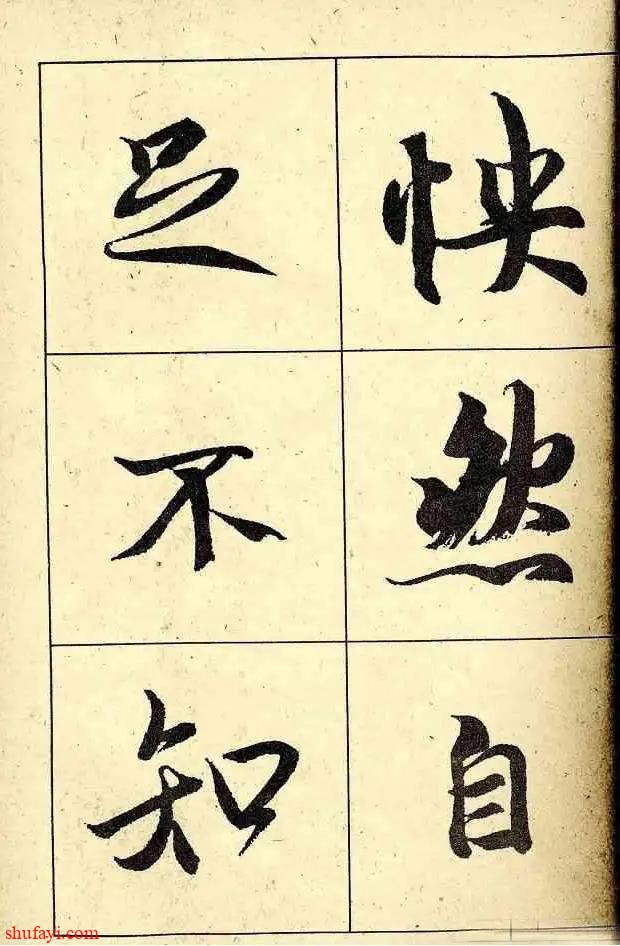 怏然自
足不知
shufayi.com